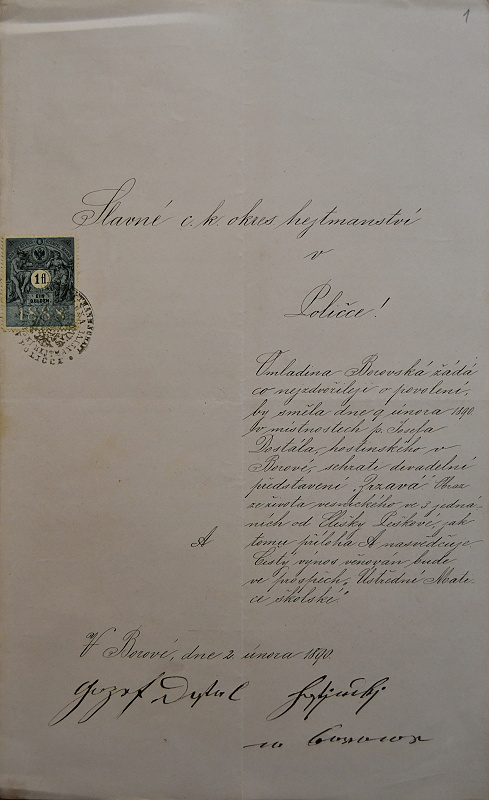 1
Slavné c. k. okres hejtmanství
v
Poličce!
1 fl
EIN
GULDEN
1888
Omladina Borovská žádá
co nejzdvořileji o povolení,
by směla dne 9 února 1890.
v místnostech p. Josefa
Dostála, hostinského v
Borové, sehrati divadelní
představení „Zrzavá" Obraz
ze života vesnického ve 3 jedná-
ních od Elišky Peškové, jak
A tomu příloha A nasvědčuje.
Čistý výnos věnován bude
ve prospěch „Ustřední Mati-
ce školské."
V Borové, dne 2. února 1890.
Jozef